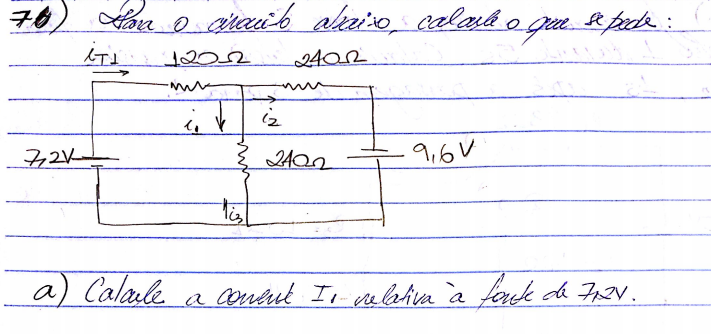 70) Para o circuito abaixo, calcule o que se pede:
iT1 120Ω 240Ω
i1 i2
7,2V 240Ω 9,6V
i3
a) Calcule a corrente I1 relativa à fonte de 7,2V.